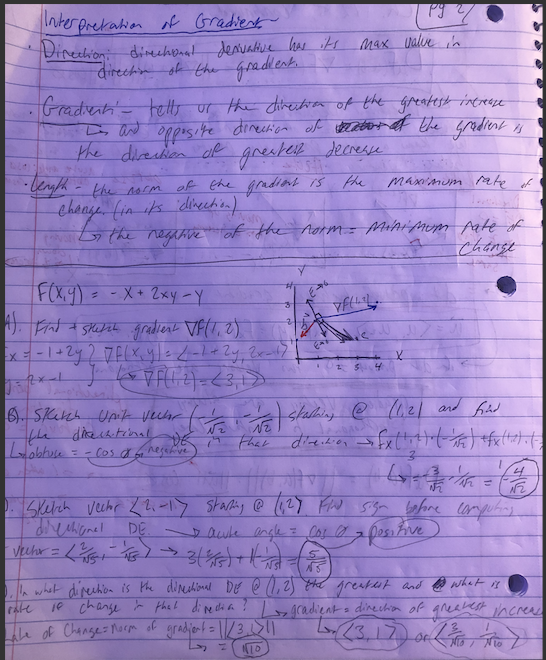 Interpretation of Gradient
pg 2
· Direction: directional derivative has its max value in
direction of the gradient.
· Gradient - tells us the direction of the greatest increase
↳ and opposite direction of the gradient is
the direction of greatest decrease
· Length - the norm of the gradient is the maximum rate of
change. (in its direction)
↳ the negative of the norm = minimum rate of
change
F(x,y) = -x + 2xy - y
A). Find + sketch gradient ∇f(1,2)
x = -1+2y } ∇f(x,y) = <-1+2y, 2x-1>
y = 2x-1 } ↳ ∇f(1,2) = <3,1>
Y
∇f(1,2)
X
B). Sketch unit vector (-1/√2, -1/√2) starting @ (1,2) and find
the directional DE in that direction → fx(1,2)·(-1/√2) + fy(1,2)·(-
↳ obtuse = -cos α = negative
↳ = -3/√2 - 1/√2 = -4/√2
). Sketch vector <2,-1> starting @ (1,2) Find sign before computing
directional DE → acute angle = cos α → positive
vector = <2/√5, -1/√5> → 3(2/√5) + 1(-1/√5) = 5/√5
). in what direction is the directional DE @ (1,2) the greatest and what is
rate of change in that direction? ↳ gradient = direction of greatest increase
rate of change = norm of gradient = ||<3,1>|| ↳ <3,1> or <3/√10, 1/√10>
= √10